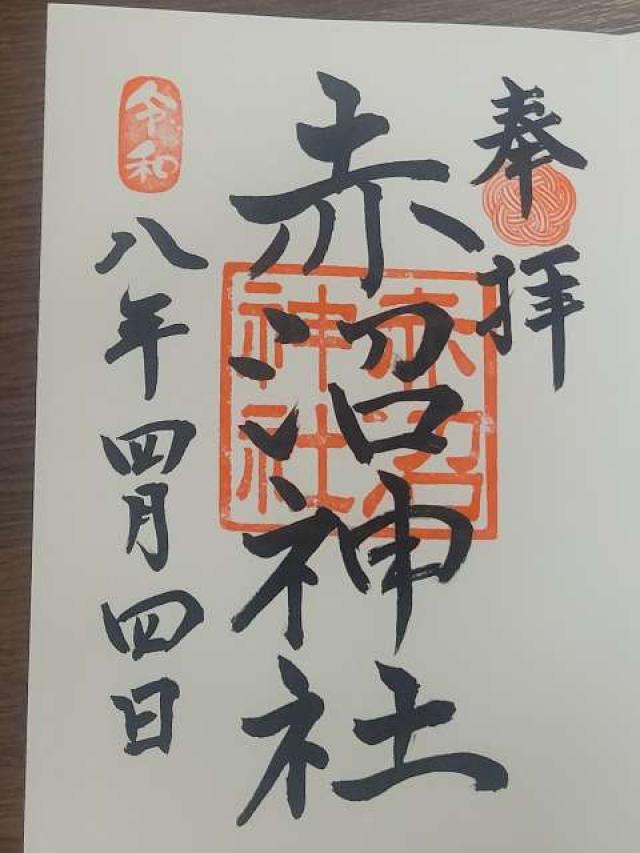 奉拝
赤沼神社
赤沼
神社
令和
八年四月四日